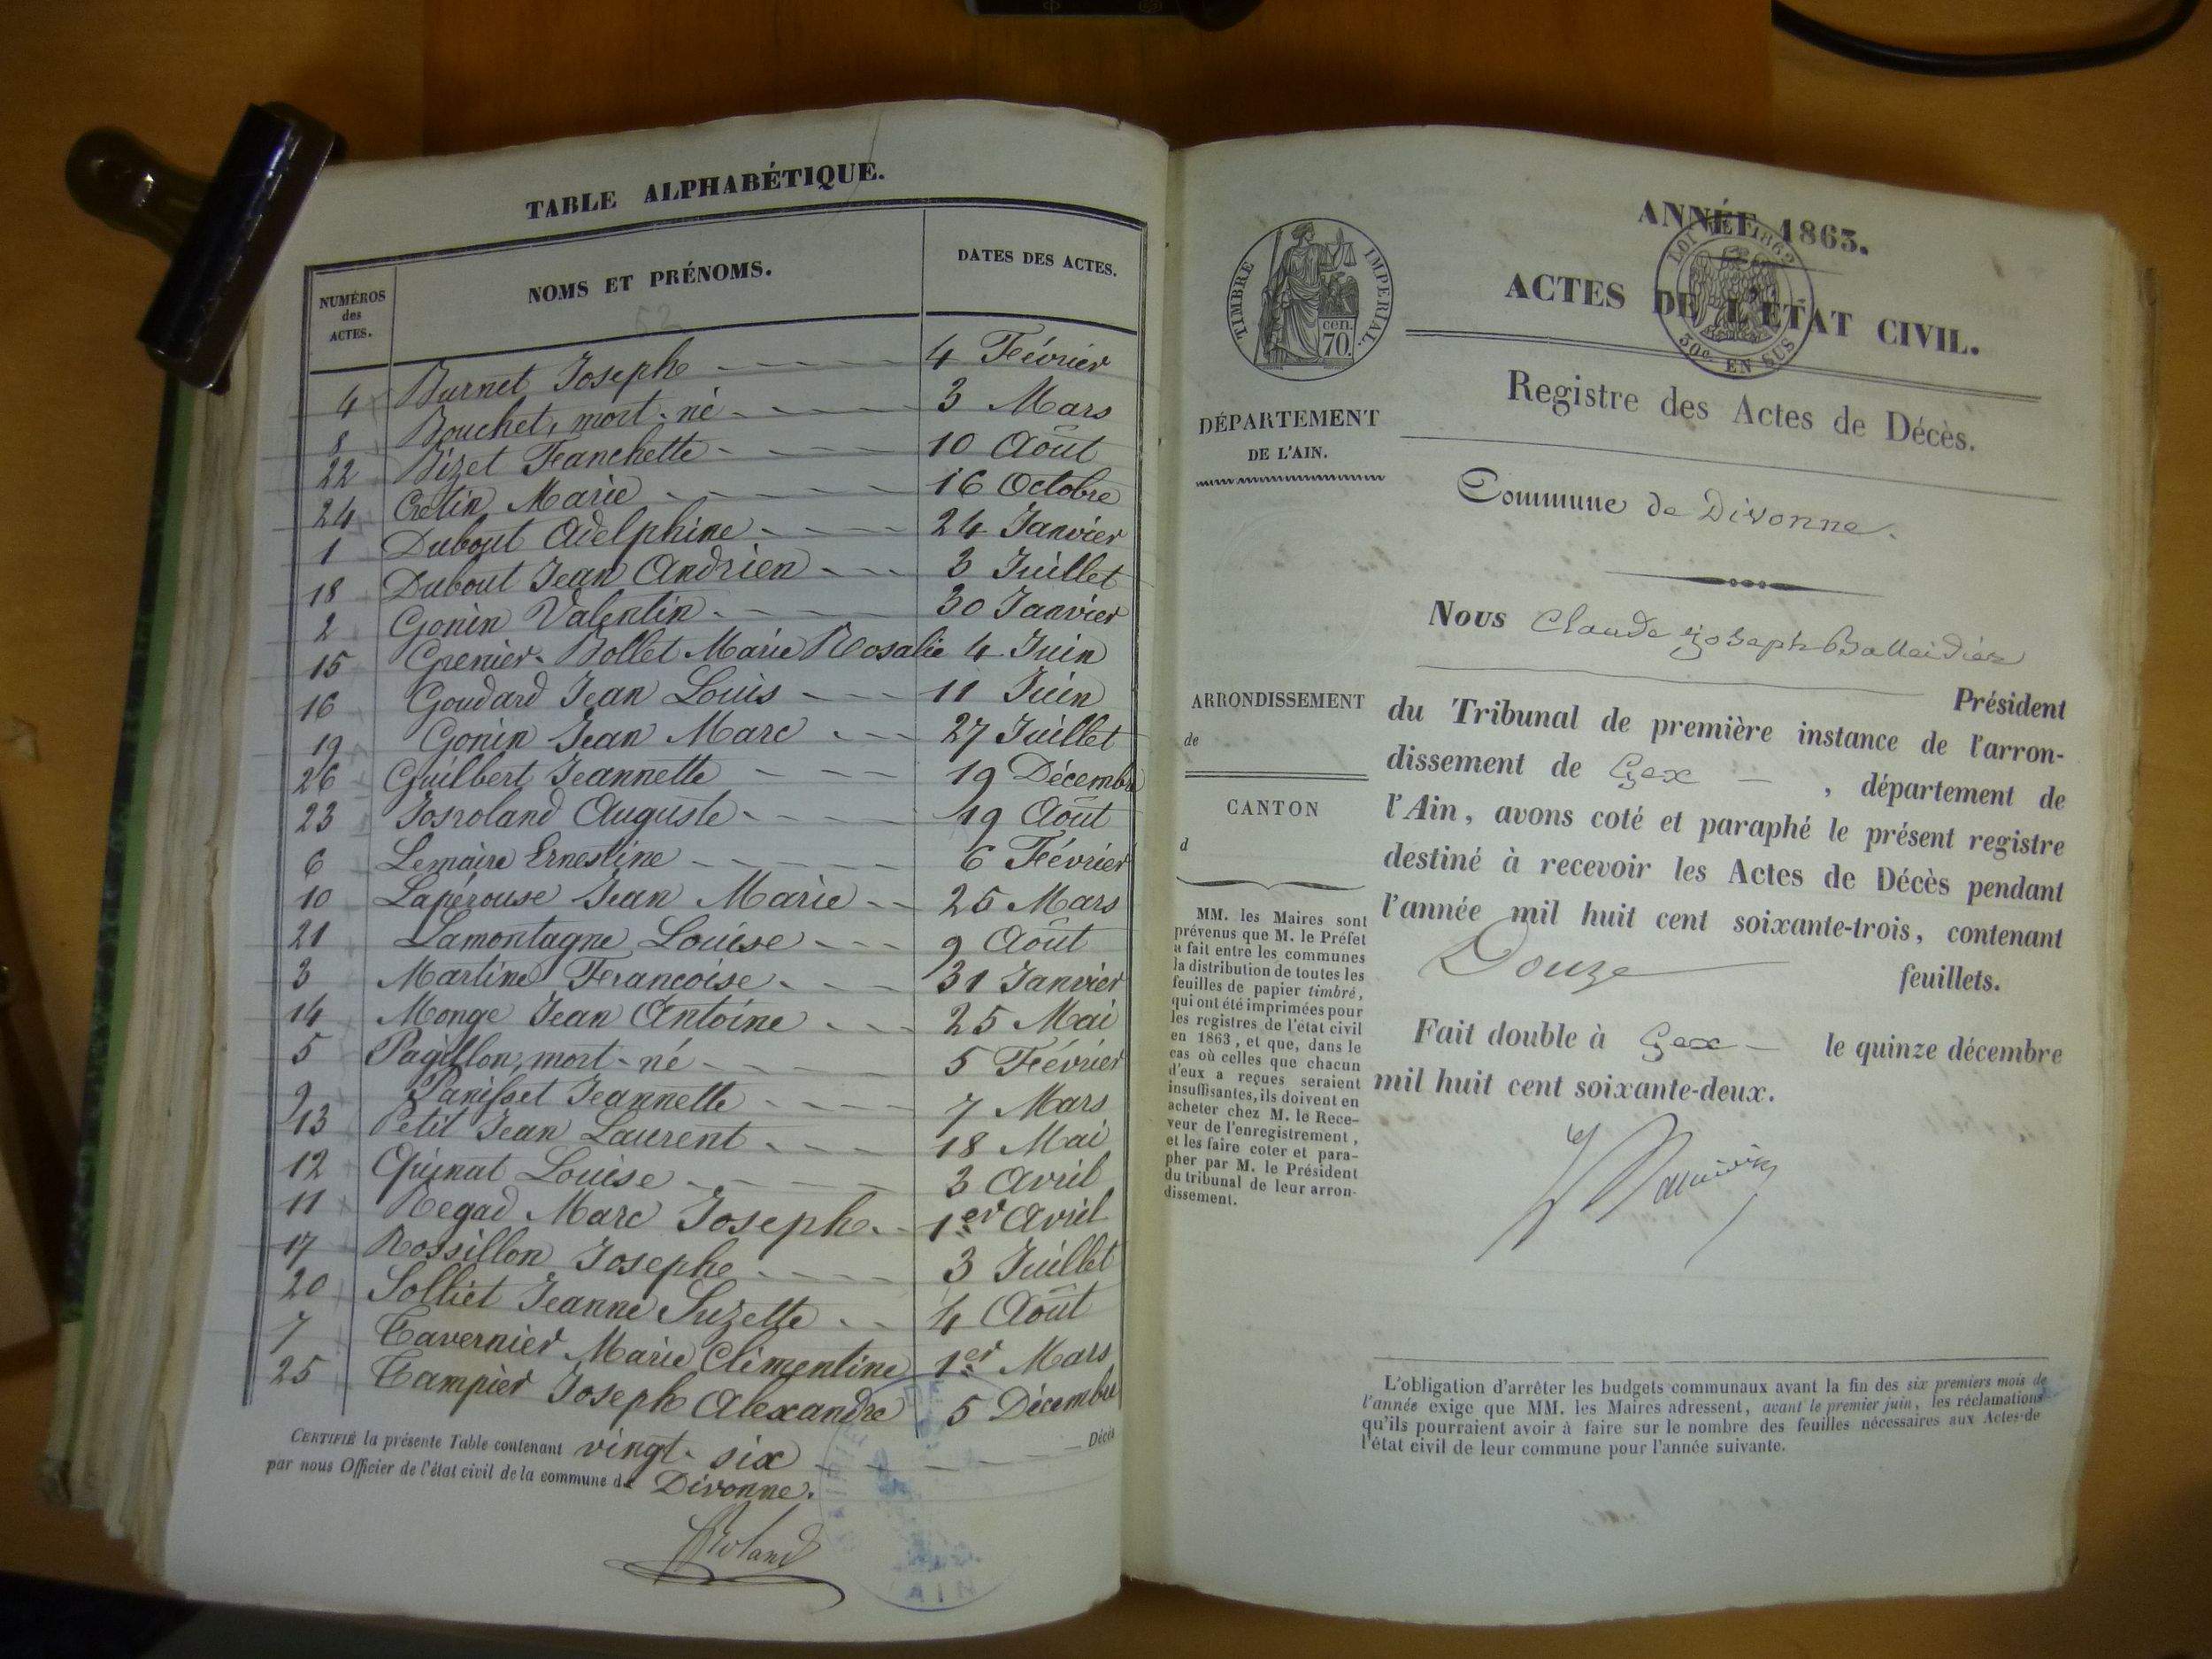 TABLE ALPHABÉTIQUE.
NUMÉROS
des
ACTES.
NOMS ET PRÉNOMS.
DATES DES ACTES.
4 Burnet Joseph 4 Février
8 Bouchet, mort-né 3 Mars
22 Bizet Fanchette 10 Août
24 Cretin Marie 16 Octobre
1 Dubout Adelphine 24 Janvier
18 Dubout Jean Andrien 3 Juillet
2 Gonin Valentin 30 Janvier
15 Grenier-Bollet Marie Rosalie 4 Juin
16 Goudard Jean Louis 11 Juin
19 Gonin Jean Marc 27 Juillet
26 Guilbert Jeannette 19 Décembre
23 Josroland Auguste 19 Août
6 Lemaire Ernestine 6 Février
10 Lapérouse Jean Marie 25 Mars
21 Lamontagne Louise 9 Août
3 Martine Francoise 31 Janvier
14 Monge Jean Antoine 25 Mai
5 Pagillon, mort-né 5 Février
9 Panisset Jeannette 7 Mars
13 Petit Jean Laurent 18 Mai
12 Quinat Louise 3 Avril
11 Regad Marc Joseph 1er Avril
17 Rossillon Josephe 3 Juillet
20 Solliet Jeanne Suzette 4 Août
7 Tavernier Marie Clémentine 1er Mars
25 Tampier Joseph Alexandre 5 Décembre
CERTIFIÉ la présente Table contenant vingt-six Décès
par nous Officier de l'état civil de la commune de Divonne.
Roland
TIMBRE IMPERIAL.
70 cen.
LOI DE 1862
50c EN SUS
ANNÉE 1863.
ACTES DE L'ÉTAT CIVIL.
Registre des Actes de Décès.
DÉPARTEMENT
DE L'AIN.
Commune de Divonne.
Nous Claude Joseph Balleidier
Président
ARRONDISSEMENT
de
CANTON
d
du Tribunal de première instance de l'arron-
dissement de Gex , département de
l'Ain, avons coté et paraphé le présent registre
destiné à recevoir les Actes de Décès pendant
l'année mil huit cent soixante-trois, contenant
Douze feuillets.
Fait double à Gex le quinze décembre
mil huit cent soixante-deux.
MM. les Maires sont
prévenus que M. le Préfet
a fait entre les communes
la distribution de toutes les
feuilles de papier timbré,
qui ont été imprimées pour
les registres de l'état civil
en 1863, et que, dans le
cas où celles que chacun
d'eux a reçues seraient
insuffisantes, ils doivent en
acheter chez M. le Rece-
veur de l'enregistrement,
et les faire coter et para-
pher par M. le Président
du tribunal de leur arron-
dissement.
L'obligation d'arrêter les budgets communaux avant la fin des six premiers mois de
l'année exige que MM. les Maires adressent, avant le premier juin, les réclamations
qu'ils pourraient avoir à faire sur le nombre des feuilles nécessaires aux Actes de
l'état civil de leur commune pour l'année suivante.